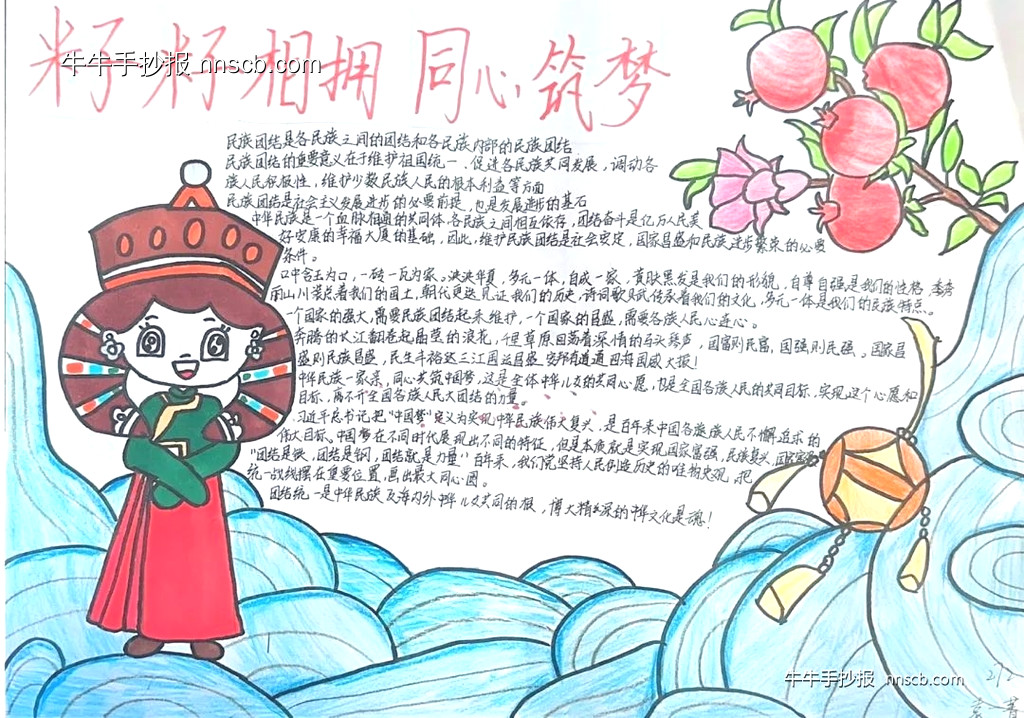 籽籽相拥 同心筑梦
牛牛手抄报 nnscb.com
民族团结是各民族之间的团结和各民族内部的民族团结
民族团结的重要意义在于维护祖国统一、促进各民族共同发展，调动各
族人民积极性，维护少数民族人民的根本利益等方面
民族团结是社会主义发展进步的必要前提，也是发展进步的基石
中华民族是一个血脉相通的共同体，各民族之间相互依存，团结奋斗是亿万人民美
好安康的幸福大厦的基础，因此，维护民族团结是社会安定，国家昌盛和民族进步繁荣的必要
条件。
口中言玉为口，一砖一瓦为家。泱泱华夏，多元一体，自成一家，黄肤黑发是我们的形貌，自尊自强是我们的性格，秀秀
丽山川装点着我们的国土，朝代更迭见证我们的历史，诗词歌赋传承着我们的文化，多元一体是我们的民族特点。
一个国家的强大，需要民族团结起来维护，一个国家的昌盛，需要各族人民心连心。
奔腾的长江翻卷起晶莹的浪花，千里草原回荡着深情的马头琴声，国富则民富，国强则民强。国家昌
盛则民族昌盛，民生丰裕达三江国运昌盛
中华民族一家亲，同心共筑中国梦，这是全体中华儿女的共同心愿，也是全国各族人民的共同目标，实现这个心愿和
目标，离不开全国各族人民大团结的力量。
习近平总书记把"中国梦"定义为实现中华民族伟大复兴，是百年来中国各族族人民不懈追求的
伟大目标，中国梦在不同时代展现出不同的特征，但是本质就是实现国家富强，民族复兴，
"团结是铁，团结是钢，团结就是力量"百年来，我们党坚持人民创造历史的唯物史观，把
统一战线摆在重要位置，画出最大同心圆。
团结统一是中华民族及海内外中华儿女共同的根，博大精深的中华文化是魂！
牛牛手抄报 nnscb.com